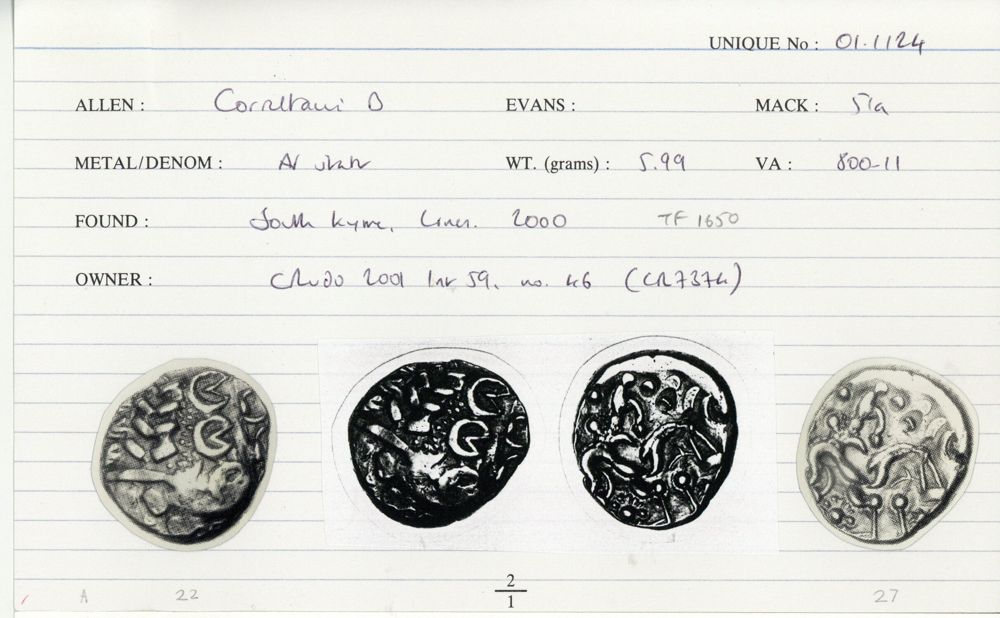 UNIQUE No : 01.1124
ALLEN : Corieltauvi D EVANS : MACK : 51a
METAL/DENOM : AV stater WT. (grams) : 5.99 VA : 800-11
FOUND : South Kyme, Lincs. 2000 TF 1650
OWNER : 2001 59, no. 46
A 22 2 27
1